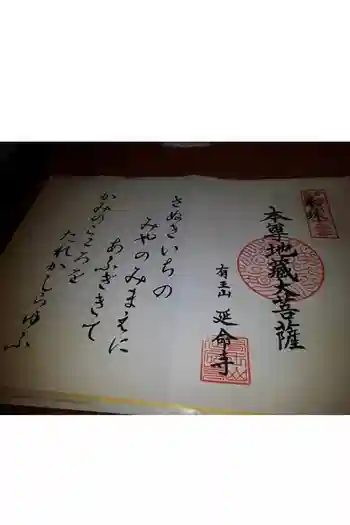 本尊地蔵大菩薩
有王山 延命寺
さぬきいちの
みやのみまえに
あふぎきて
かみのこころを
たれかしらゆふ